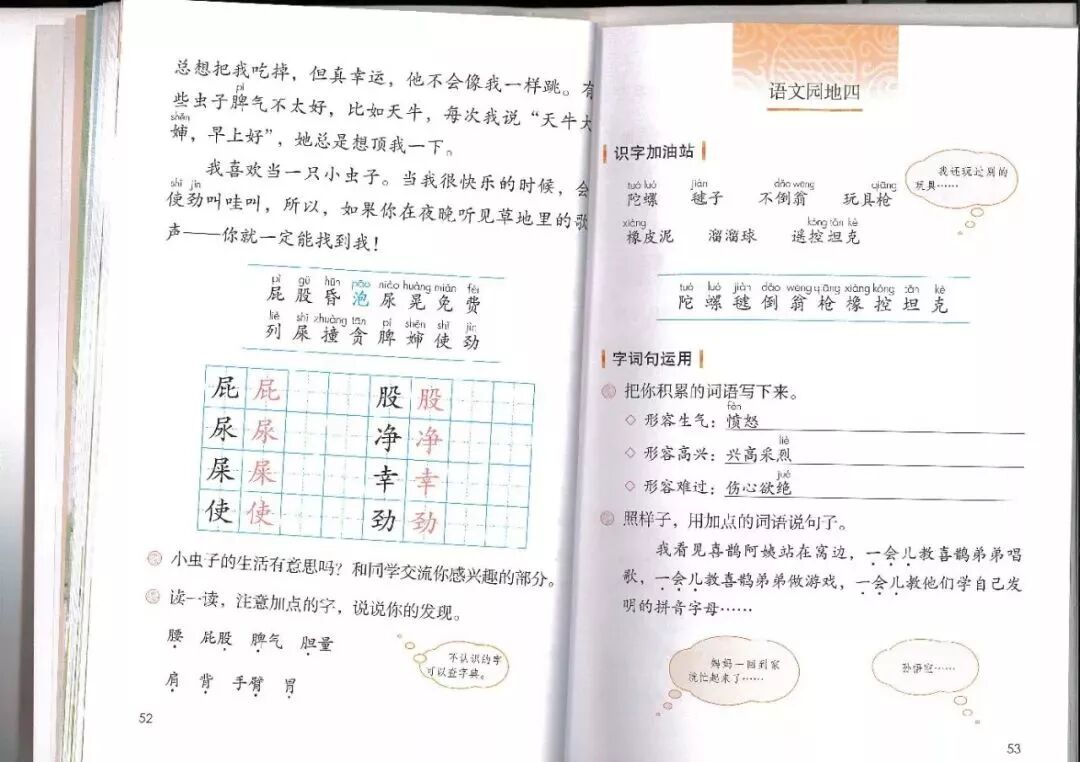 总想把我吃掉，但真幸运，他不会像我一样跳。有
pí
些虫子脾气不太好，比如天牛，每次我说“天牛大
shěn
婶，早上好”，她总是想顶我一下。
我喜欢当一只小虫子。当我很快乐的时候，会
shǐ jìn
使劲叫哇叫，所以，如果你在夜晚听见草地里的歌
声——你就一定能找到我！
pì gǔ hūn pāo niào huàng miǎn fèi
屁 股 昏 泡 尿 晃 免 费
liè shǐ zhuàng tān pí shěn shǐ jìn
列 屎 撞 贪 脾 婶 使 劲
屁 屁 股 股
尿 尿 净 净
屎 屎 幸 幸
使 使 劲 劲
小虫子的生活有意思吗？和同学交流你感兴趣的部分。
读一读，注意加点的字，说说你的发现。
腰 屁股 脾气 胆量
肩 背 手臂 胃
不认识的字
可以查字典。
52
语文园地四
识字加油站
我还玩过别的
玩具……
tuó luó jiàn dǎo wēng qiāng
陀螺 毽子 不倒翁 玩具枪
xiàng kòng tǎn kè
橡皮泥 溜溜球 遥控坦克
tuó luó jiàn dǎo wēng qiāng xiàng kòng tǎn kè
陀 螺 毽 倒 翁 枪 橡 控 坦 克
字词句运用
把你积累的词语写下来。
fèn
◇ 形容生气：愤怒
liè
◇ 形容高兴：兴高采烈
jué
◇ 形容难过：伤心欲绝
照样子，用加点的词语说句子。
我看见喜鹊阿姨站在窝边，一会儿教喜鹊弟弟唱
歌，一会儿教喜鹊弟弟做游戏，一会儿教他们学自己发
明的拼音字母……
妈妈一回到家
就忙起来了……
孙悟空……
53